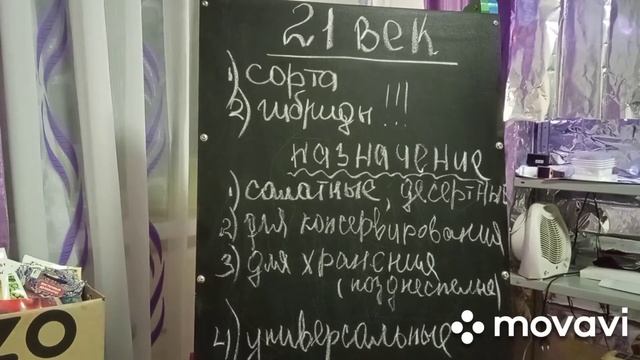 21 век
1) сорта
2) гибриды !!!
назначение
1) салатные, десертны
2) для консервирования
3) для хранения
(позднеспелые)
4) универсальные
movavi